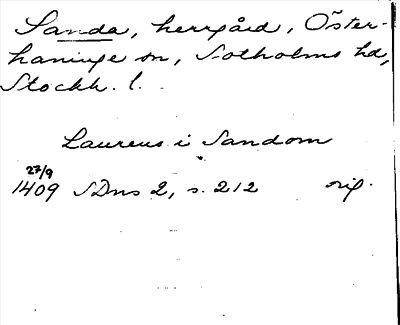 Sanda, herrgård, Öster-
haninge sn, Sotholms hd,
Stockh. l.
Laurens i Sandom
27/9
1409 SDns 2, s. 212 orig.